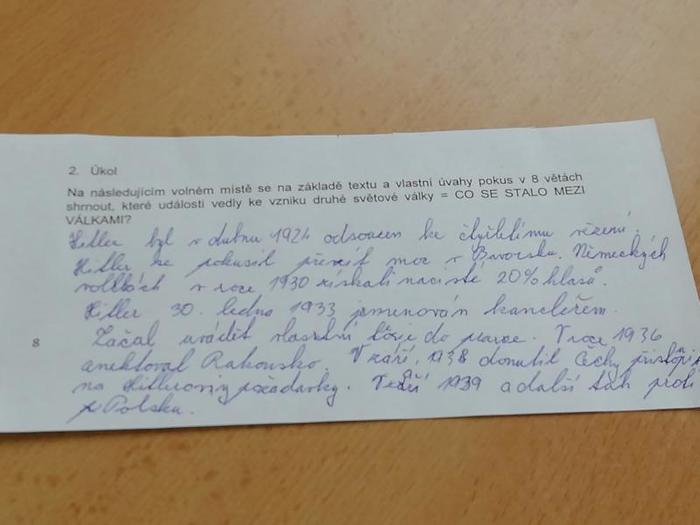 2. Úkol
Na následujícím volném místě se na základě textu a vlastní úvahy pokus v 8 větách
shrnout, které události vedly ke vzniku druhé světové války = CO SE STALO MEZI
VÁLKAMI?
Hitler byl v dubnu 1924 odsouzen ke čtyřletímu vězení.
Hitler se pokusil převzít moc v Bavorsku. Německých
volbách v roce 1930 získali nacisté 20% hlasů.
Hitler 30. ledna 1933 jmenován kancléřem.
8
Začal uvádět vlastní do praxe. V roce 1936
anektoval Rakousko. V září 1938 donutil Čechy přistoupit
na Hitlerovy požadavky. 1939 a další tah proti
Polsku.